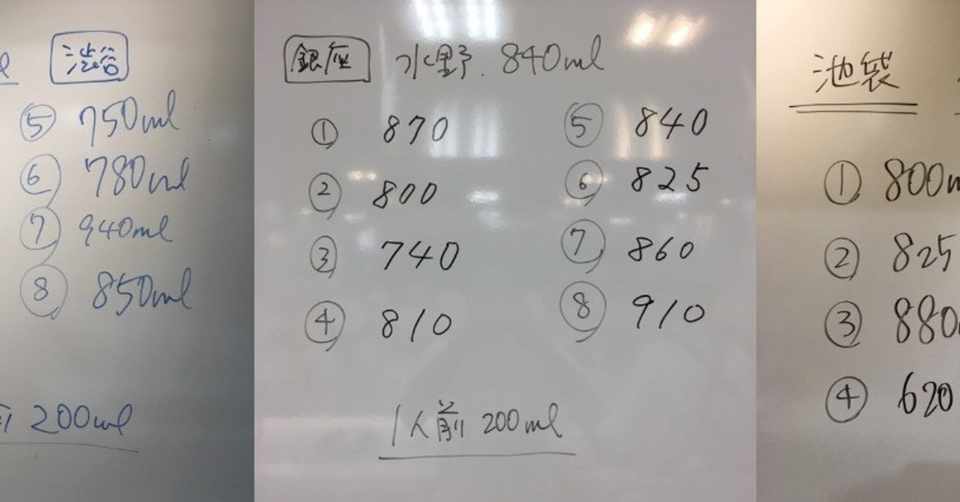 渋谷
⑤ 750ml
⑥ 780ml
⑦ 940ml
⑧ 850ml
前 200ml
銀座 水野. 840ml
① 870
② 800
③ 740
④ 810
⑤ 840
⑥ 825
⑦ 860
⑧ 910
1人前 200ml
池袋
① 800m
② 825
③ 880
④ 620